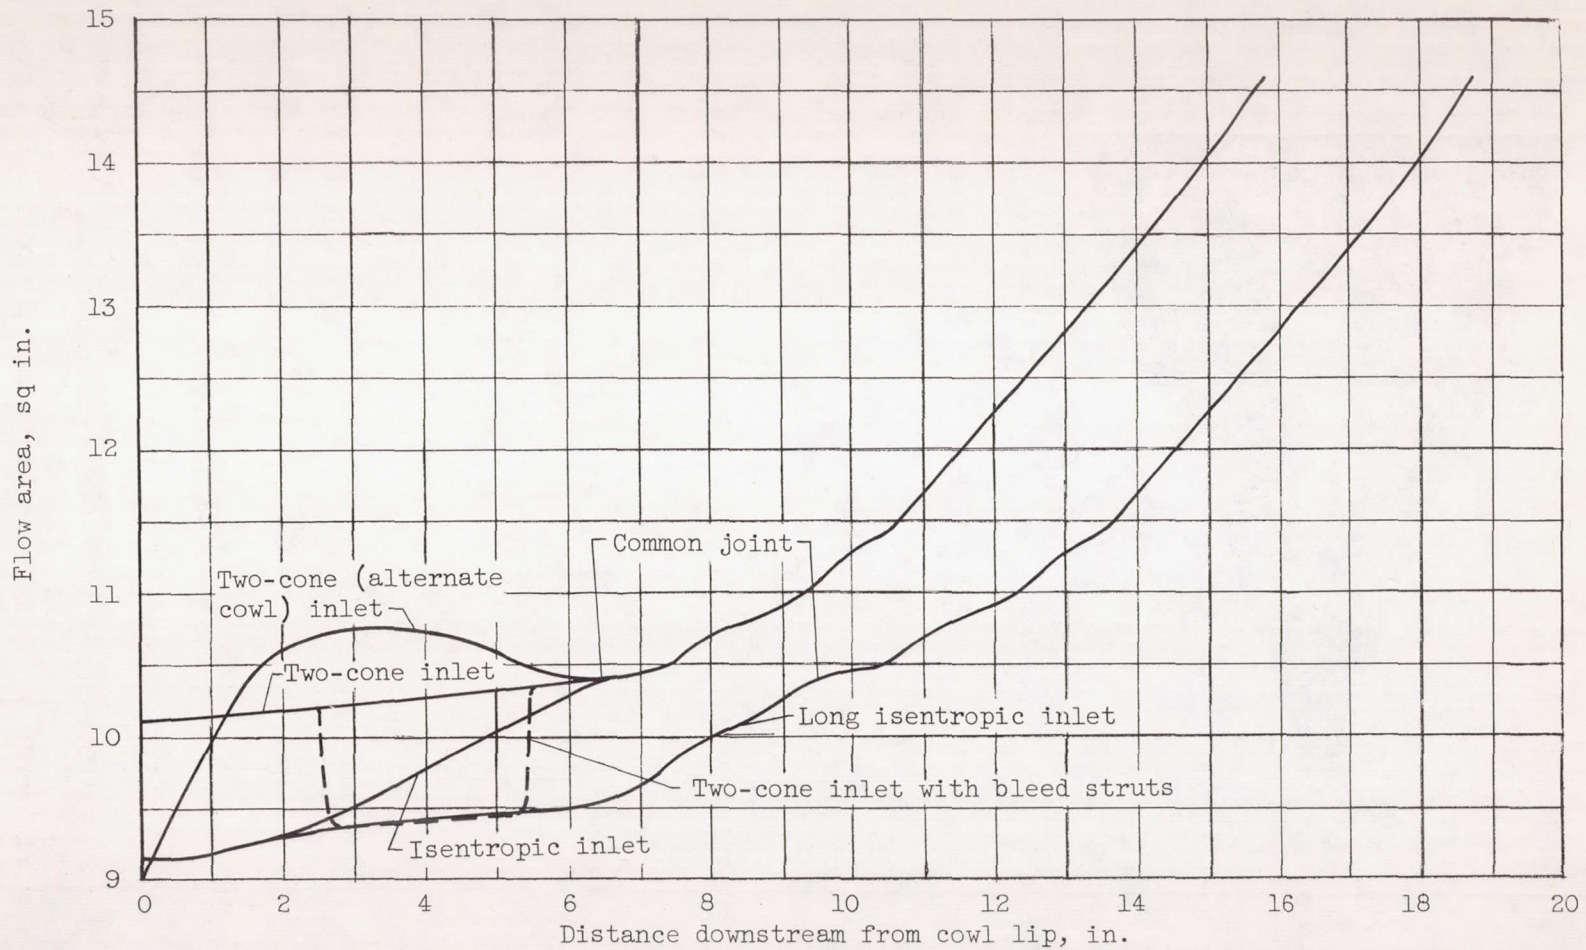 15
14
13
12
11
10
9
Flow area, sq in.
Common joint
Two-cone (alternate
cowl) inlet
Two-cone inlet
Long isentropic inlet
Two-cone inlet with bleed struts
Isentropic inlet
0 2 4 6 8 10 12 14 16 18 20
Distance downstream from cowl lip, in.